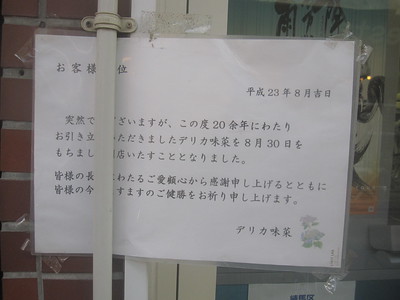 お客様 位
平成23年8月吉日
突然で ございますが、この度20余年にわたり
お引き立 いただきましたデリカ味菜を8月30日を
もちまし 店いたすこととなりました。
皆様の長 わたるご愛顧心から感謝申し上げるとともに
皆様の今 ますますのご健勝をお祈り申し上げます。
デリカ味菜
練馬区